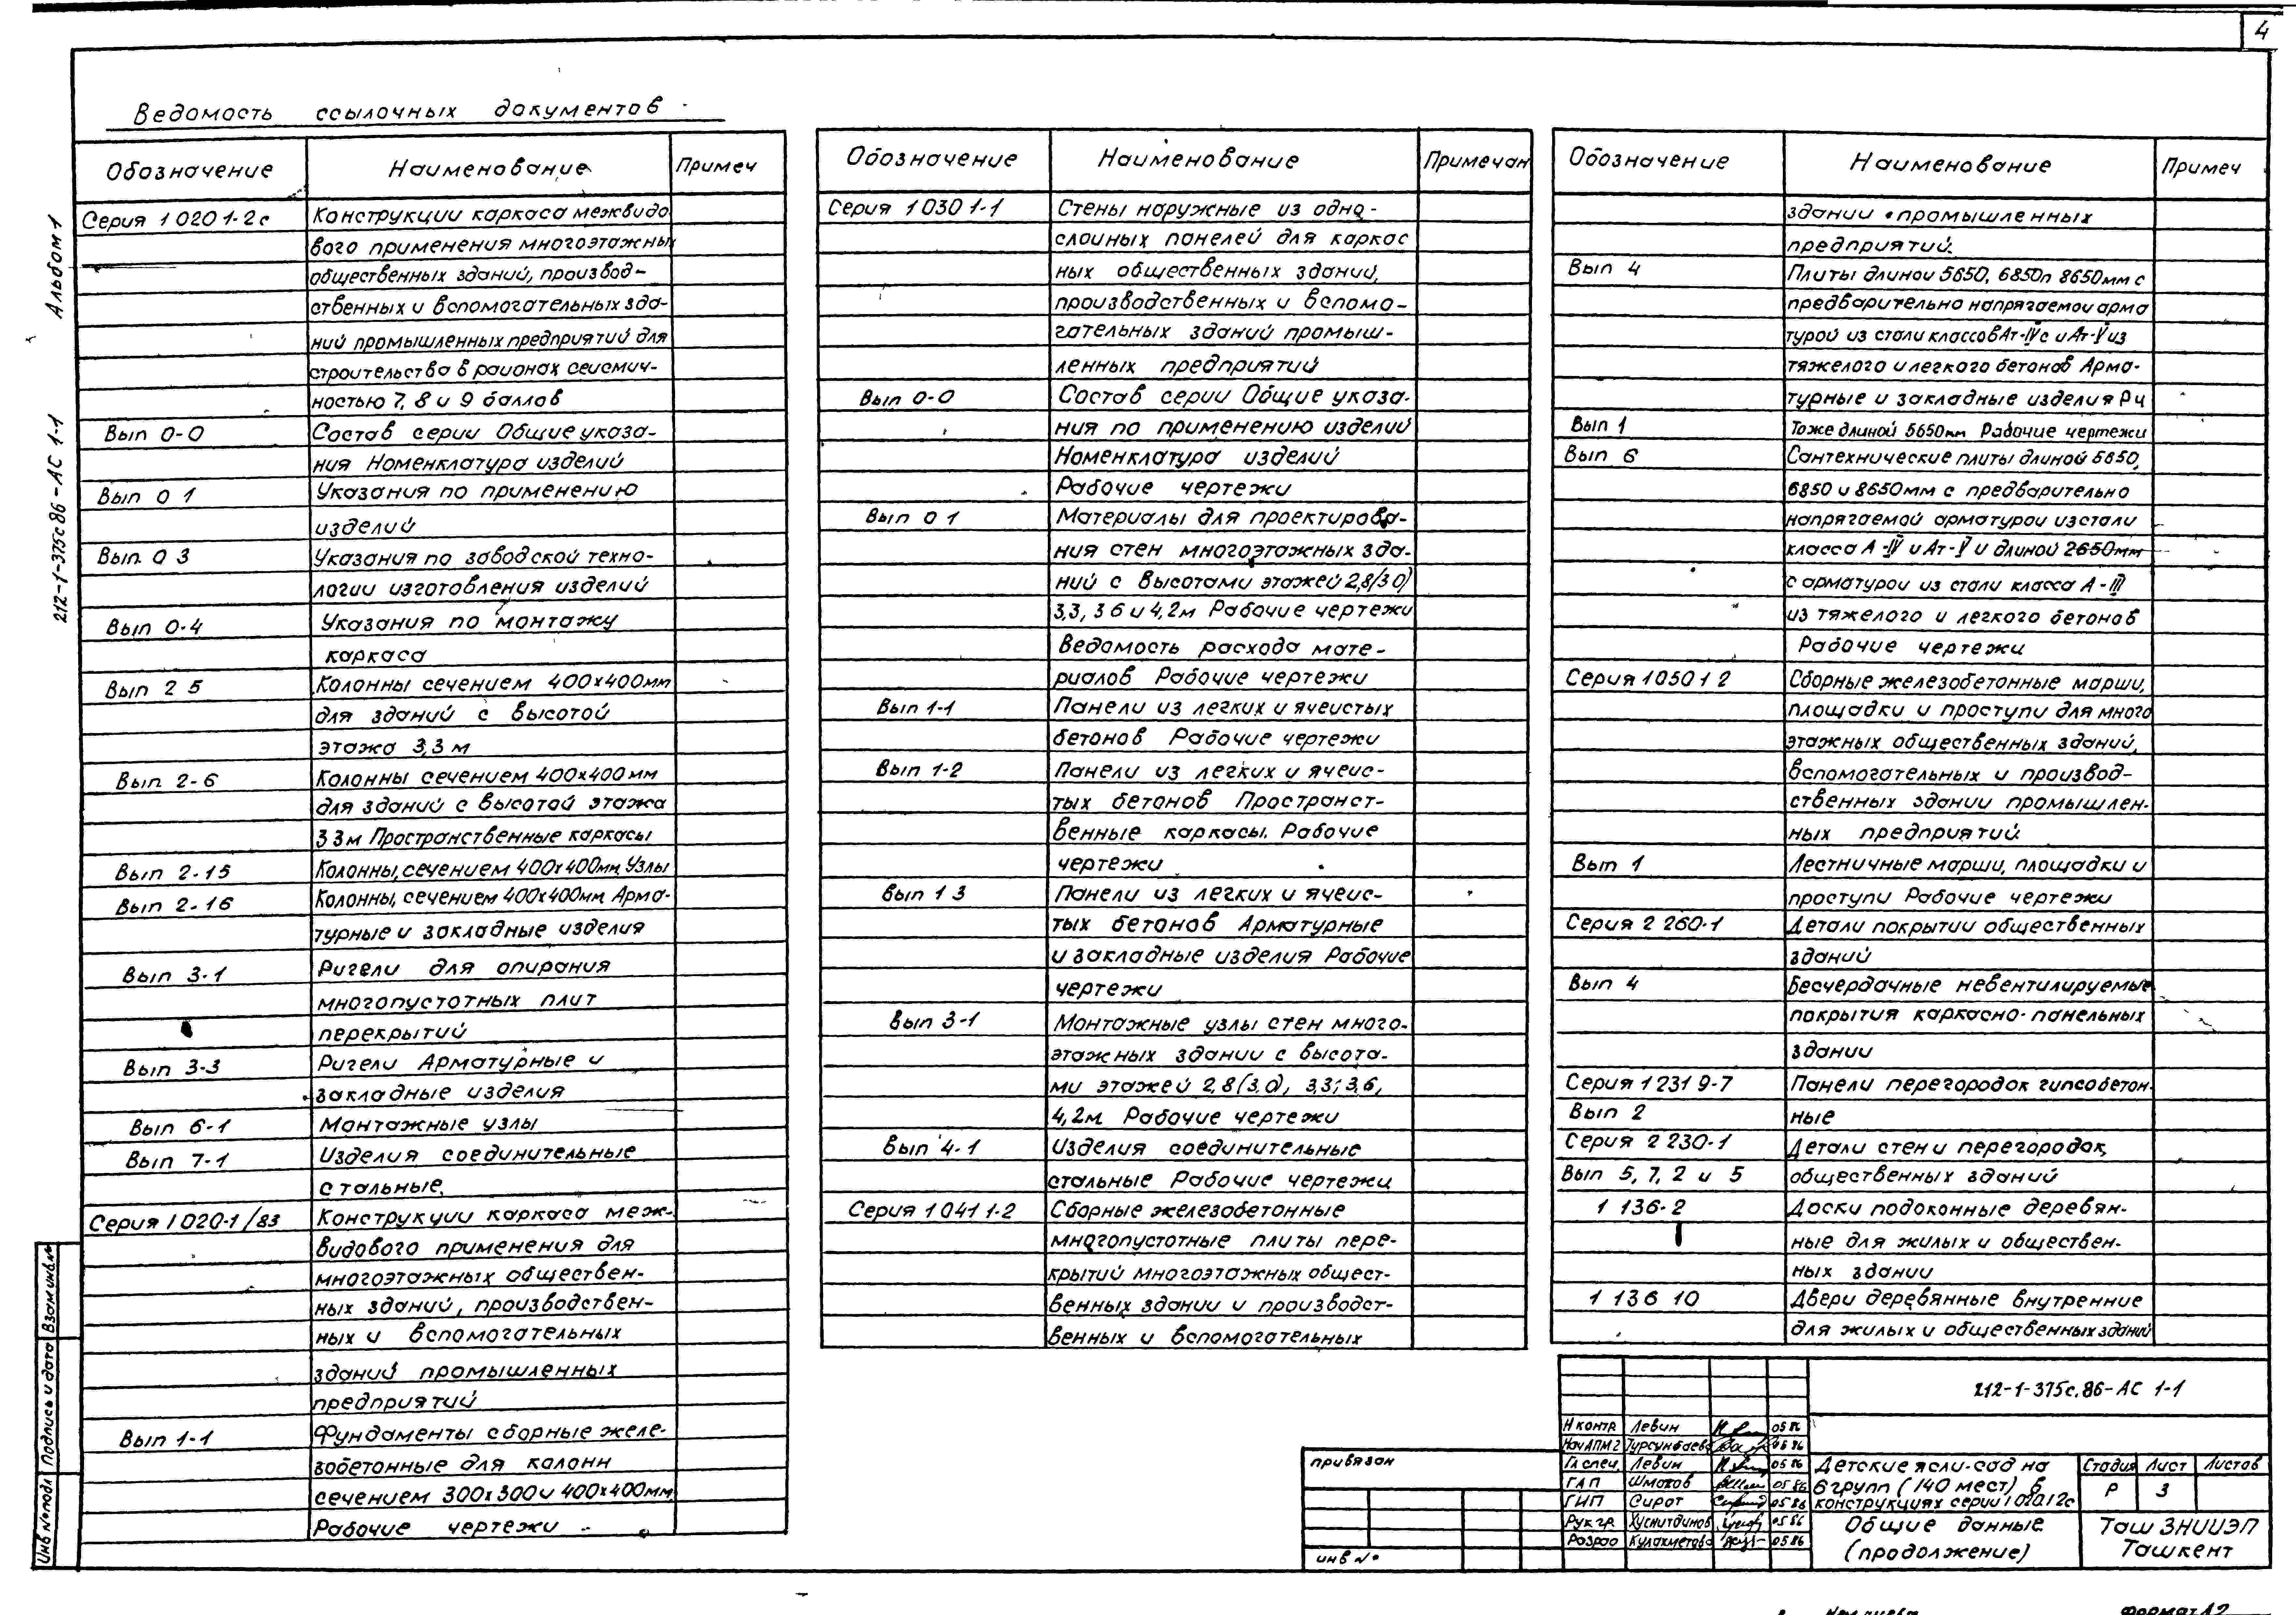 4
Ведомость ссылочных документов
Альбом 1
212-1-375с86-АС 1-1
Обозначение Наименование Примеч
Серия 1 020 1-2с Конструкции каркаса межвидо
вого применения многоэтажны
общественных зданий, производ-
ственных и вспомогательных зда-
ний промышленных предприятий для
строительства в районах сейсмич-
ностью 7, 8 и 9 баллов
Вып 0-0 Состав серии Общие указа-
ния Номенклатура изделий
Вып 0 1 Указания по применению
изделий
Вып. 0 3 Указания по заводской техно-
логии изготовления изделий
Вып 0-4 Указания по монтажу
каркаса
Вып 2 5 Колонны сечением 400х400мм
для зданий с высотой
этажа 3,3 м
Вып 2-6 Колонны сечением 400х400мм
для зданий с высотой этажа
3 3м Пространственные каркасы
Вып 2-15 Колонны, сечением 400х400мм, Узлы
Вып 2-16 Колонны, сечением 400х400мм Арма-
турные и закладные изделия
Вып 3-1 Ригели для опирания
многопустотных плит
перекрытий
Вып 3-3 Ригели Арматурные и
закладные изделия
Вып 6-1 Монтажные узлы
Вып 7-1 Изделия соединительные
стальные.
Серия 1 020-1/83 Конструкции каркаса меж-
видового применения для
многоэтажных обществен-
ных зданий, производствен-
ных и вспомогательных
зданий промышленных
предприятий
Вып 1-1 Фундаменты сборные желе-
зобетонные для колонн
сечением 300х300 и 400х400мм,
Рабочие чертежи
Обозначение Наименование Примечан
Серия 1 030 1-1 Стены наружные из одно-
слоиных панелей для каркас
ных общественных зданий,
производственных и вспомо-
гательных зданий промыш-
ленных предприятий
Вып 0-0 Состав серии Общие указа-
ния по применению изделий
Номенклатура изделий
Рабочие чертежи
Вып 0 1 Материалы для проектирова-
ния стен многоэтажных зда-
ний с высотами этажей 2,8/3 0)
3,3, 3 6 и 4,2м Рабочие чертежи
Ведомость расхода мате-
риалов Рабочие чертежи
Вып 1-1 Панели из легких и ячеистых
бетонов Рабочие чертежи
Вып 1-2 Панели из легких и ячеис-
тых бетонов Пространст-
венные каркасы. Рабочие
чертежи
Вып 1 3 Панели из легких и ячеис-
тых бетонов Арматурные
и закладные изделия Рабочие
чертежи
Вып 3-1 Монтажные узлы стен много-
этажных здании с высота-
ми этажей 2,8(3,0), 3,3; 3,6,
4,2м Рабочие чертежи
Вып 4-1 Изделия соединительные
стальные Рабочие чертежи
Серия 1 041 1-2 Сборные железобетонные
многопустотные плиты пере-
крытий многоэтажных общест-
венных здании и производст-
венных и вспомогательных
Обозначение Наименование Примеч
здании промышленных
предприятий.
Вып 4 Плиты длиной 5650, 6850п 8650мм с
предварительно напрягаемои арма
турой из стали классов Ат-IVс и Ат-V из
тяжелого и легкого бетонов Арма-
турные и закладные изделия Р ч
Вып 1 Тоже длиной 5650мм Рабочие чертежи
Вып 6 Сантехнические плиты длиной 5650,
6850 и 8650мм с предварительно
напрягаемой арматурои из стали
класса А-IV и Ат-V и длиной 2650мм
с арматурои из стали класса А-III
из тяжелого и легкого бетонов
Рабочие чертежи
Серия 1 050 1 2 Сборные железобетонные марши,
площадки и проступи для много
этажных общественных зданий,
вспомогательных и производ-
ственных здании промышлен-
ных предприятий
Вып 1 Лестничные марши, площадки и
проступи Рабочие чертежи
Серия 2 260-1 Детали покрытии общественных
зданий
Вып 4 Бесчердачные невентилируемые
покрытия каркасно-панельных
здании
Серия 1 231 9-7 Панели перегородок гипсобетон-
Вып 2 ные
Серия 2 230-1 Детали стен и перегородок,
Вып 5, 7, 2 и 5 общественных зданий
1 136-2 Доски подоконные деревян-
ные для жилых и обществен-
ных здании
1 136 10 Двери деревянные внутренние
для жилых и общественных зданий
Взам инв №
Подпись и дата
Инв № подл
привязан
инв №
212-1-375с.86-АС 1-1
Н контр Левин 05 86
Нач АПМ 2 Турсунбаева 05 86
Гл спец. Левин 05 86
ГАП Шмаков 05 86
ГИП Сирот 05 86
Рук гр. Хуснитдинов 05 86
Разраб Кулахметова 05 86
Детские ясли-сад на
6 групп (140 мест) в
конструкциях серии 1 020.1 2с
Стадия Лист Листов
Р 3
Общие данные
(продолжение)
Таш ЗНИИЭП
Ташкент
Формат А2